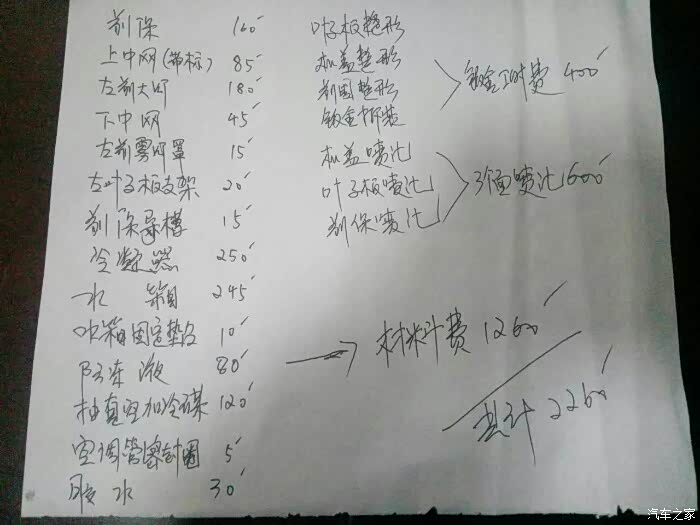 前保 160
上中网(带标) 85
左前大灯 180
下中网 45
左前雾灯罩 15
左叶子板支架 20
前保导槽 15
冷凝器 250
水箱 245
水箱固定垫 10
防冻液 80
抽真空加冷媒 120
空调管密封圈 5
胶水 30
叶子板整形
机盖整形
前围整形
钣金拆装
钣金工时费 400
机盖喷漆
叶子板喷漆
前保喷漆
3面喷漆 600
材料费 1260
总计 2260
汽车之家